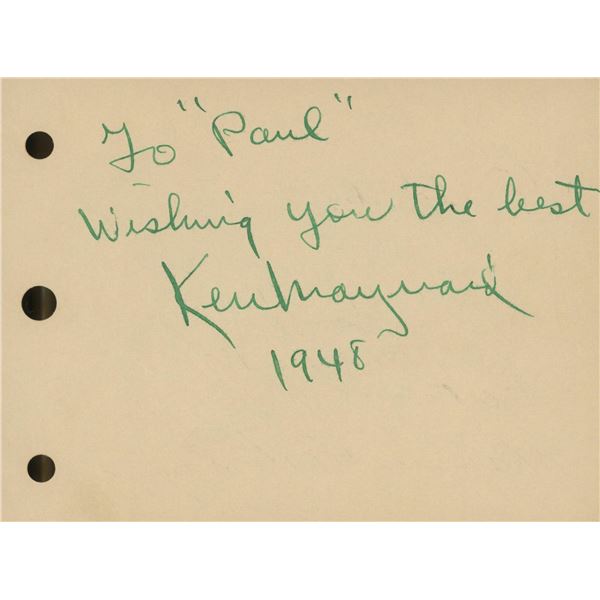 To "Paul"
Wishing you the best
Ken Maynard
1948